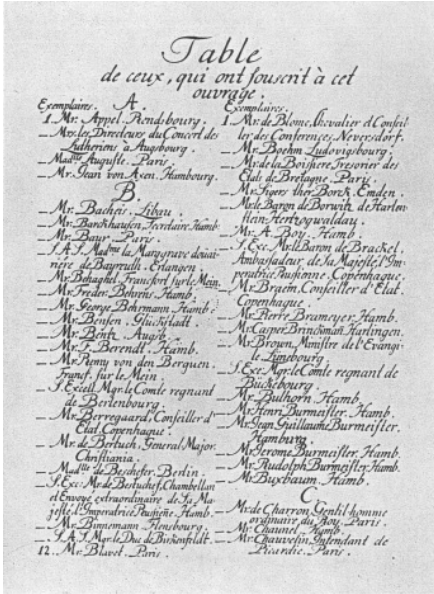 Table
de ceux, qui ont souscrit à cet
ouvrage.
Exemplaires. A.
1. Mr. Appel. Rendsbourg.
_ Mrs. les Directeurs du Concert des
Lutheriens à Augsbourg.
_ Madlle Auguste. Paris.
_ Mr. Jean von Axen. Hambourg.
B.
_ Mr. Bacheis. Libau.
_ Mr. Barckhausen, Secretaire. Hamb.
_ Mr. Baur. Paris.
_ S. A. S. Madme la Marggrave douai-
riére de Bayreuth. Erlangen.
_ Mr. Behaghel. Francfort sur le Mein.
_ Mr. Freder. Behrens. Hamb.
_ Mr. George Behrmann. Hamb.
_ Mr. Bensen. Glückstadt.
_ Mr. Bentz. Augsb.
_ Mr. F. Berendt. Hamb.
_ Mr. Remy von den Berguen.
Francf. sur le Mein.
_ S. Excell. Mgr. le Comte regnant
de Berlenbourg.
_ Mr. Berregaard, Conseiller d'
Etat. Copenhague.
_ Mr. de Bertuch, General Major.
Christiania.
_ Madlle de Beschefer. Berlin.
_ S. Exc. Mr. de Bestuchef, Chambellan
et Envoyé extraordinaire de Sa Ma-
jesté l'Imperatrice Hamb.
_ Mr. Binnemann. Flensbourg.
_ S. A. S. Mgr. le Duc de Birkenfeldt.
12. Mr. Blavet. Paris.
Exemplaires.
1. Mr. de Blome, Chevalier et Conseil-
ler des Conferences. Neversdorf.
_ Mr. Boehm. Ludovigsbourg.
_ Mr. de la Boissiere, Tresorier des
Etats de Bretagne. Paris.
_ Mr. ther Borck. Emden.
_ Mr. le Baron de Borwitz de Harten-
stein. Hertzogwaldau.
_ Mr. A. Boy. Hamb.
_ S. Exc. Mr. le Baron de Brackel,
Ambassadeur de Sa Majesté l'Im-
peratrice Copenhague.
_ Mr. Braem, Conseiller d'Etat.
Copenhague.
_ Mr. Pierre Brameyer. Hamb.
_ Mr. Casper Brinckman. Harlingen.
_ Mr. Brown, Ministre de l'Evangi-
le. Lünebourg.
_ S. Exc. Mgr. le Comte regnant de
Bückebourg.
_ Mr. Bulhorn. Hamb.
_ Mr. Henri Burmeister. Hamb.
_ Mr. Jean Guillaume Burmeister.
Hambourg.
_ Mr. Jerome Burmeister. Hamb.
_ Mr. Rudolph Burmeister. Hamb.
_ Mr. Buxbaum. Hamb.
C
_ Mr. de Charron, Gentilhomme
ordinaire du Roy. Paris.
_ Mr. Chaunel. Hamb.
_ Mr. Chauvelin, Intendant de
Picardie. Paris.